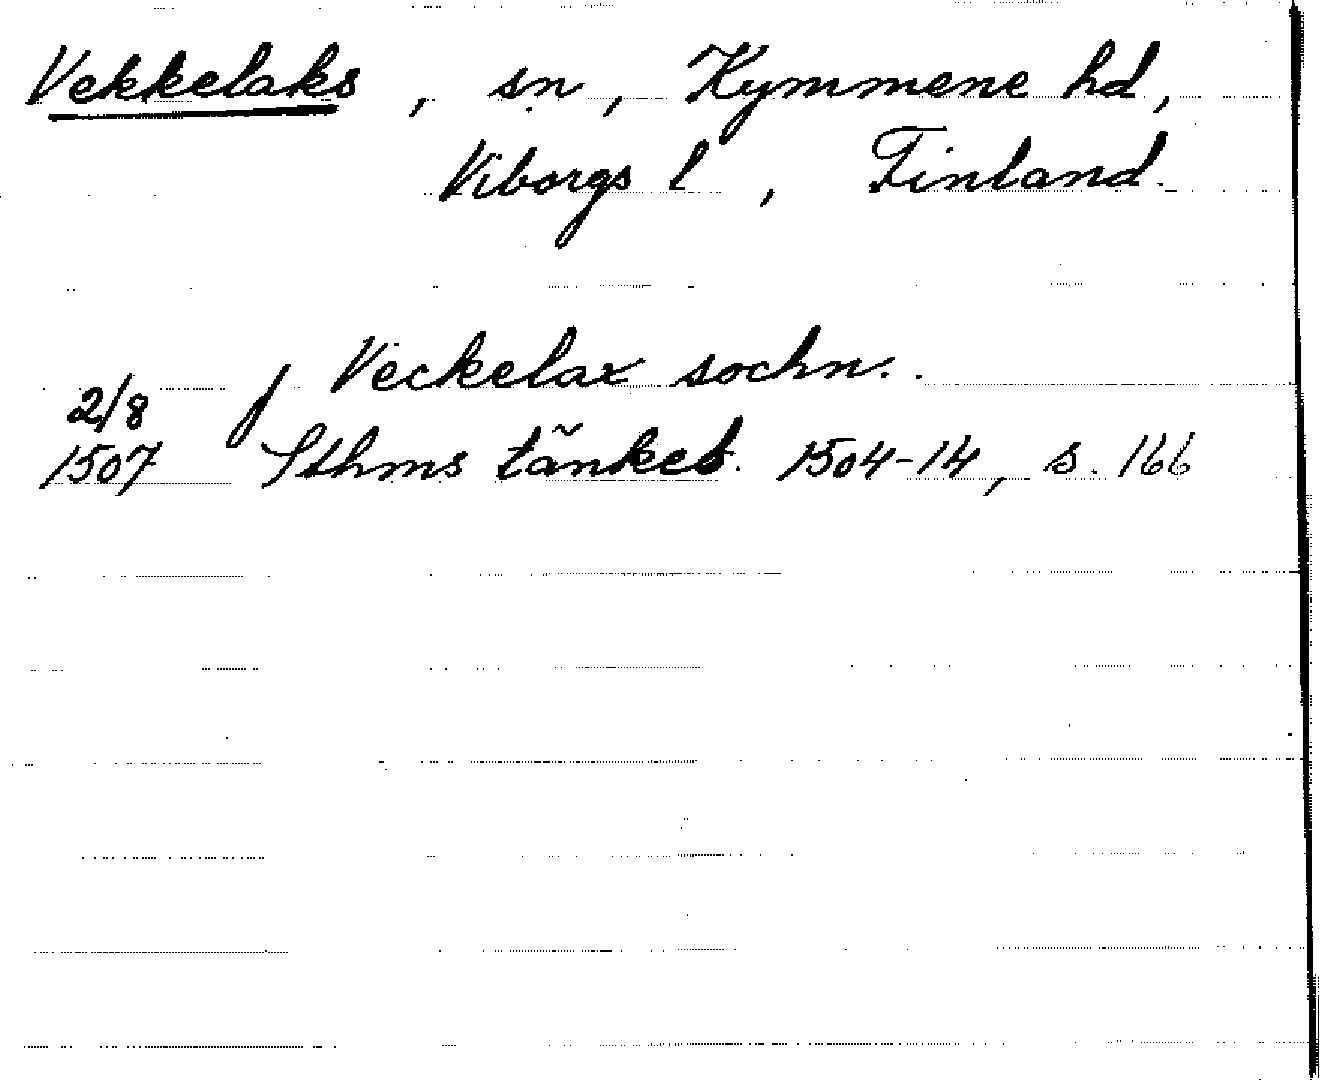 Vekkelaks, sn, Kymmene hd,
Viborgs l, Finland.
2/8 j Veckelax sochn.
1507 Sthms tänkeb. 1504-14, s. 166